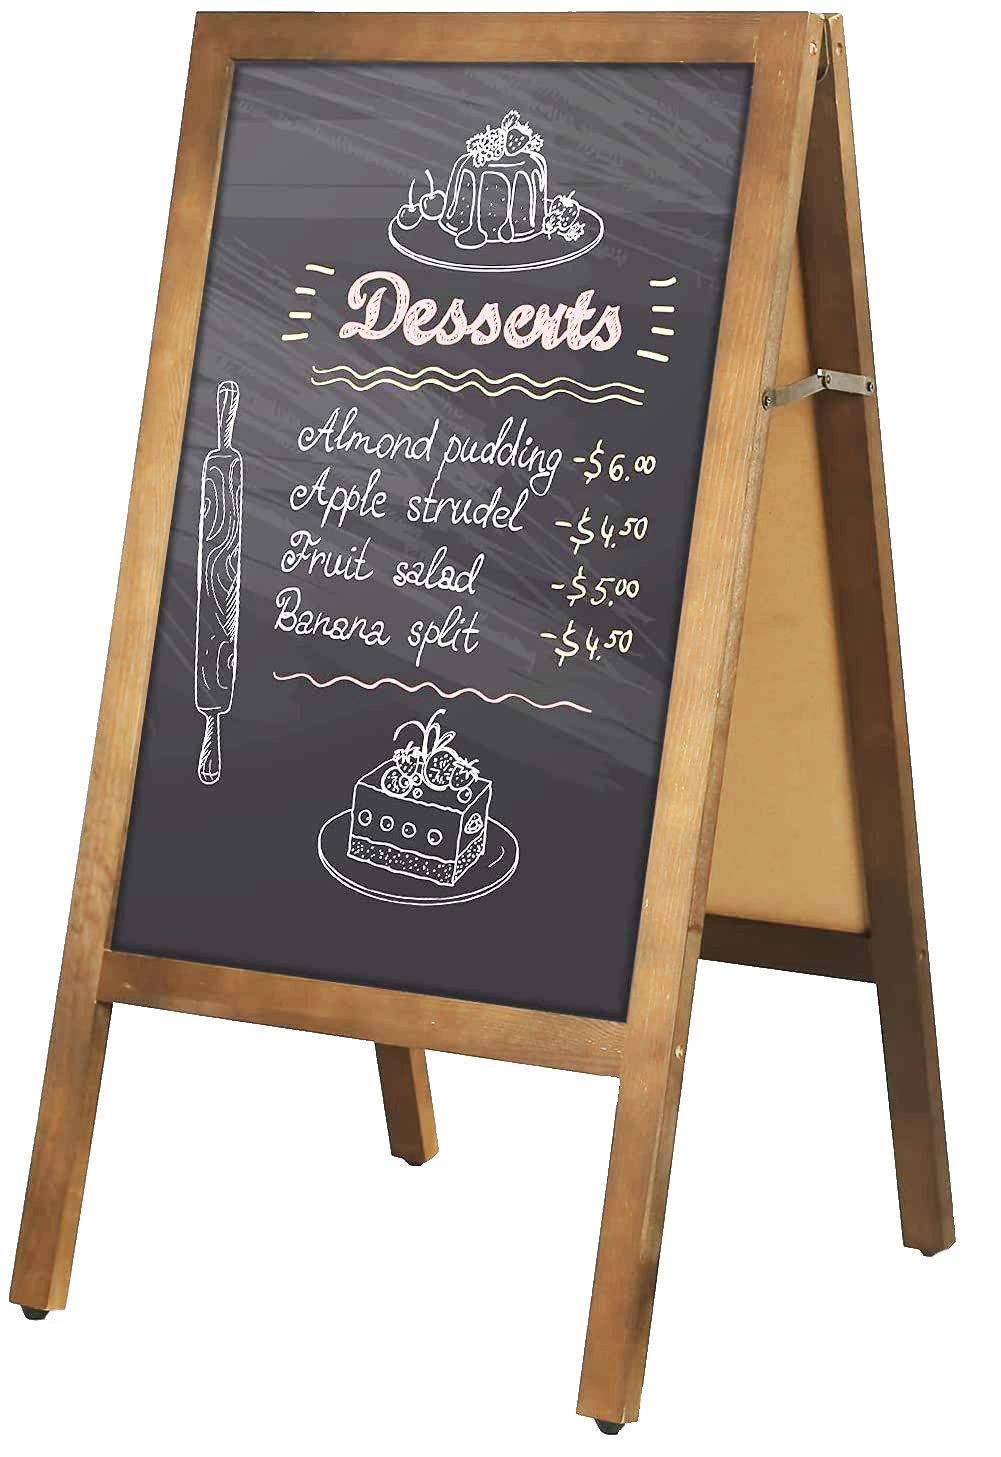 Desserts
Almond pudding -$6.00
Apple strudel -$4.50
Fruit salad -$5.00
Banana split -$4.50